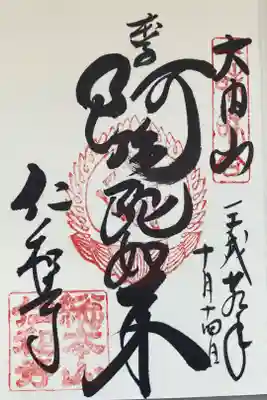 大内山
平成廿九年
十月十四日
奉
阿弥陀如来
仁和寺
総本山
仁和寺